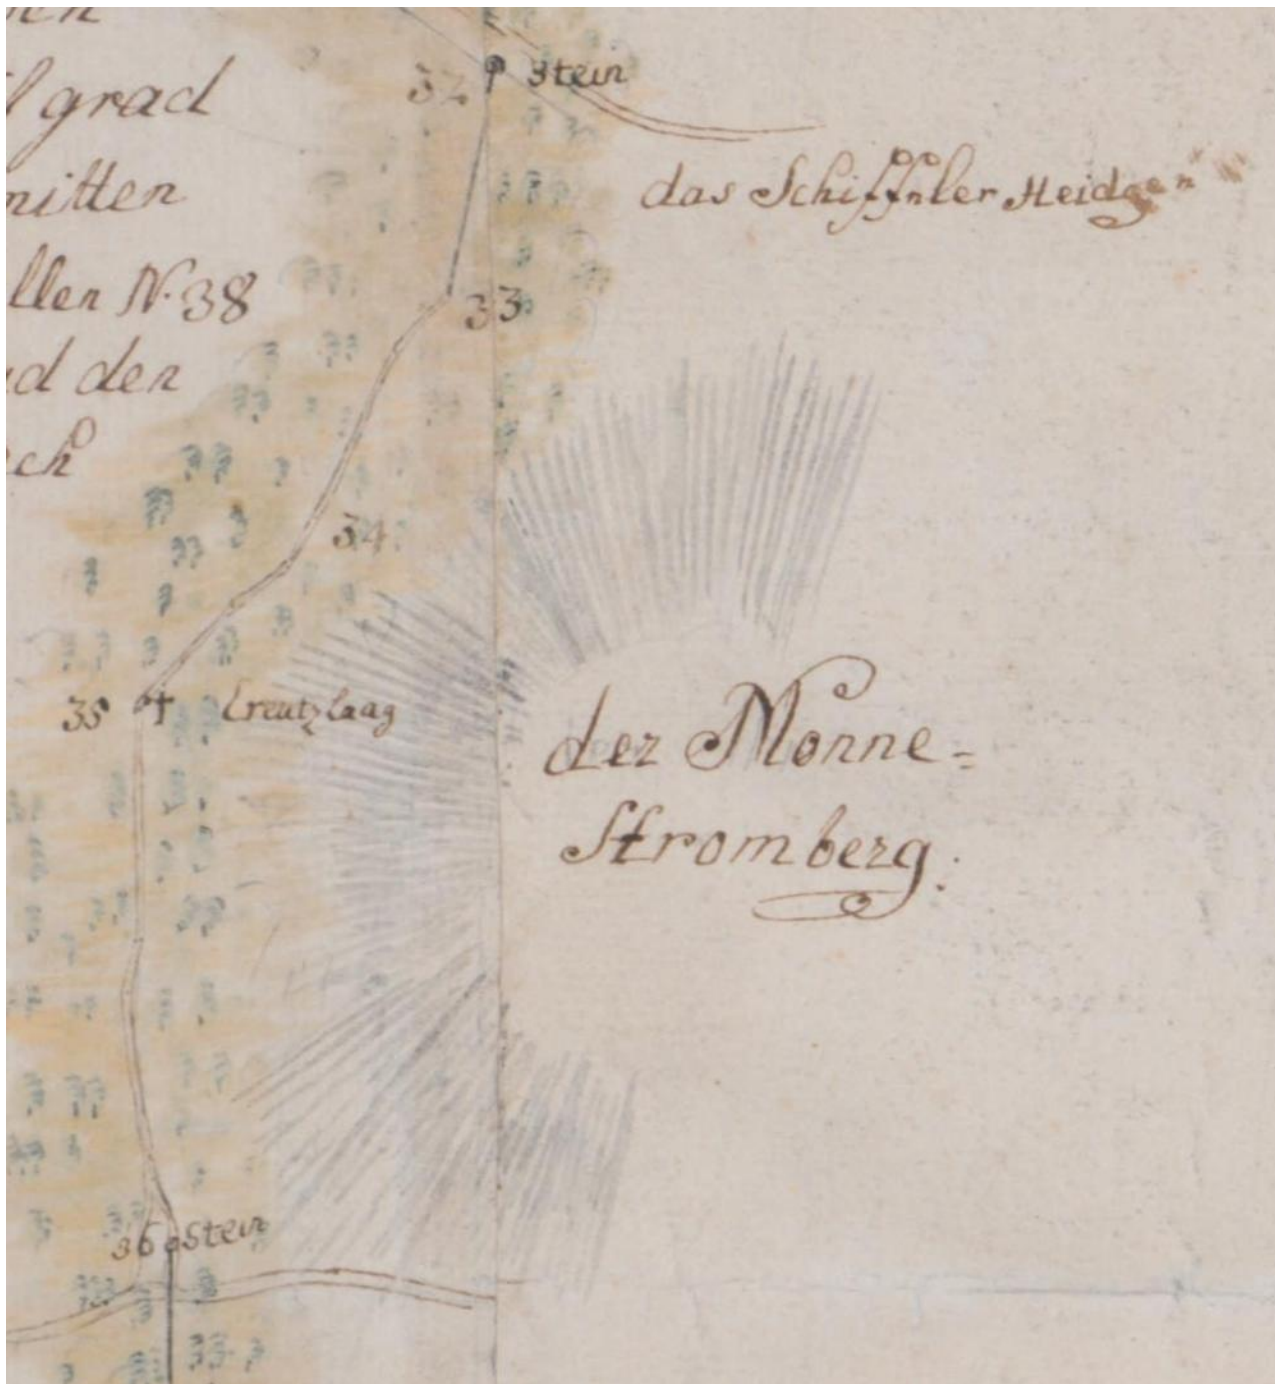 grad
mitten
llen N. 38
d den
ch
32 Stein
das Schiffnler Heidgen
33
34
35 Creutzlaag
der Monne=
Stromberg.
36 Stein